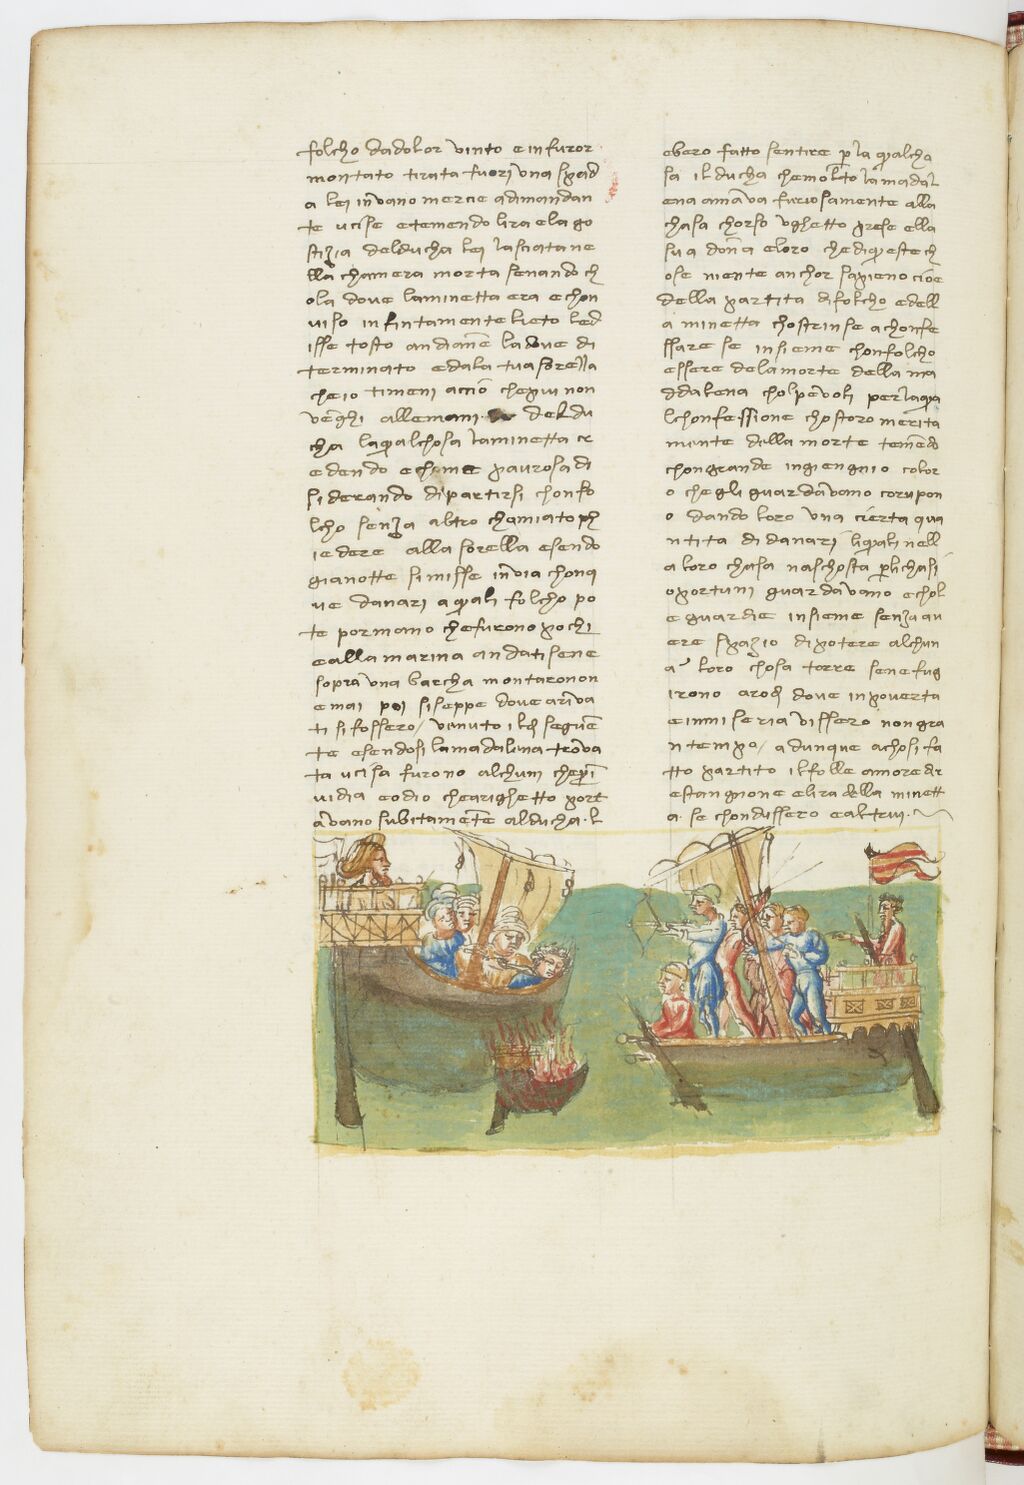 folcho dadolor vinto einfuror
montato tirata fuori una spad
a lei invano mercie adimandan
te ucise etemendo lira ela go
stizia delducha lei lasciata ne
lla chamera morta senando ch
ola dove laminetta era echon
viso infintamente lieto led
isse tosto andianē la dove di
terminato edala tua sorella
cheio timeni acciō chepiu non
venghi allemani deldu
cha laqualchosa laminetta cr
edendo echome paurosa di
siderando dipartirsi chonfo
lcho senza altro chomiato ch
iedere alla sorella esendo
gianotte simisse invia chonq
ue danari aquali folcho po
te pormano chefurono pochi
ealla marina andatisene
sopra una barcha montaronon
emai poi siseppe dove ariva
ti sifossero / venuto ildi seguē
te esendosi lamadalena trova
ta ucisa furono alchuni chepī
vidia eodio chearighetto port
avano subitamēte alducha l
ebero fatto sentire p la qualcho
sa ilducha chemolto lamadal
ena amava furiosamente alla
chasa chorso ughetto prese ella
sua donā eloro chediqueste ch
ose niente anchor sapieno cioe
della partita difolcho edell
a minetta chostrinse achonfe
ssare se insieme chonfolcho
essere delamorte della ma
ddalena cholpevoli perlaqua
lchonfessione chostoro merita
mente della morte temēdo
chongrande ingiengnio color
o chegli guardavano corupon
o dando loro una cierta qua
ntita di danari liquali nell
a loro chasa naschosta plichasi
oportuni guardavano echol
e guardie insieme senza av
ere spazio dipotere alchun
a loro chosa torre senefug
irono arodi dove inpoverta
einmiseria vissero nongra
ntempo / adunque achosi fa
tto partito ilfolle amore dr
estangnone elira della minett
a se chondussero ealtrui.